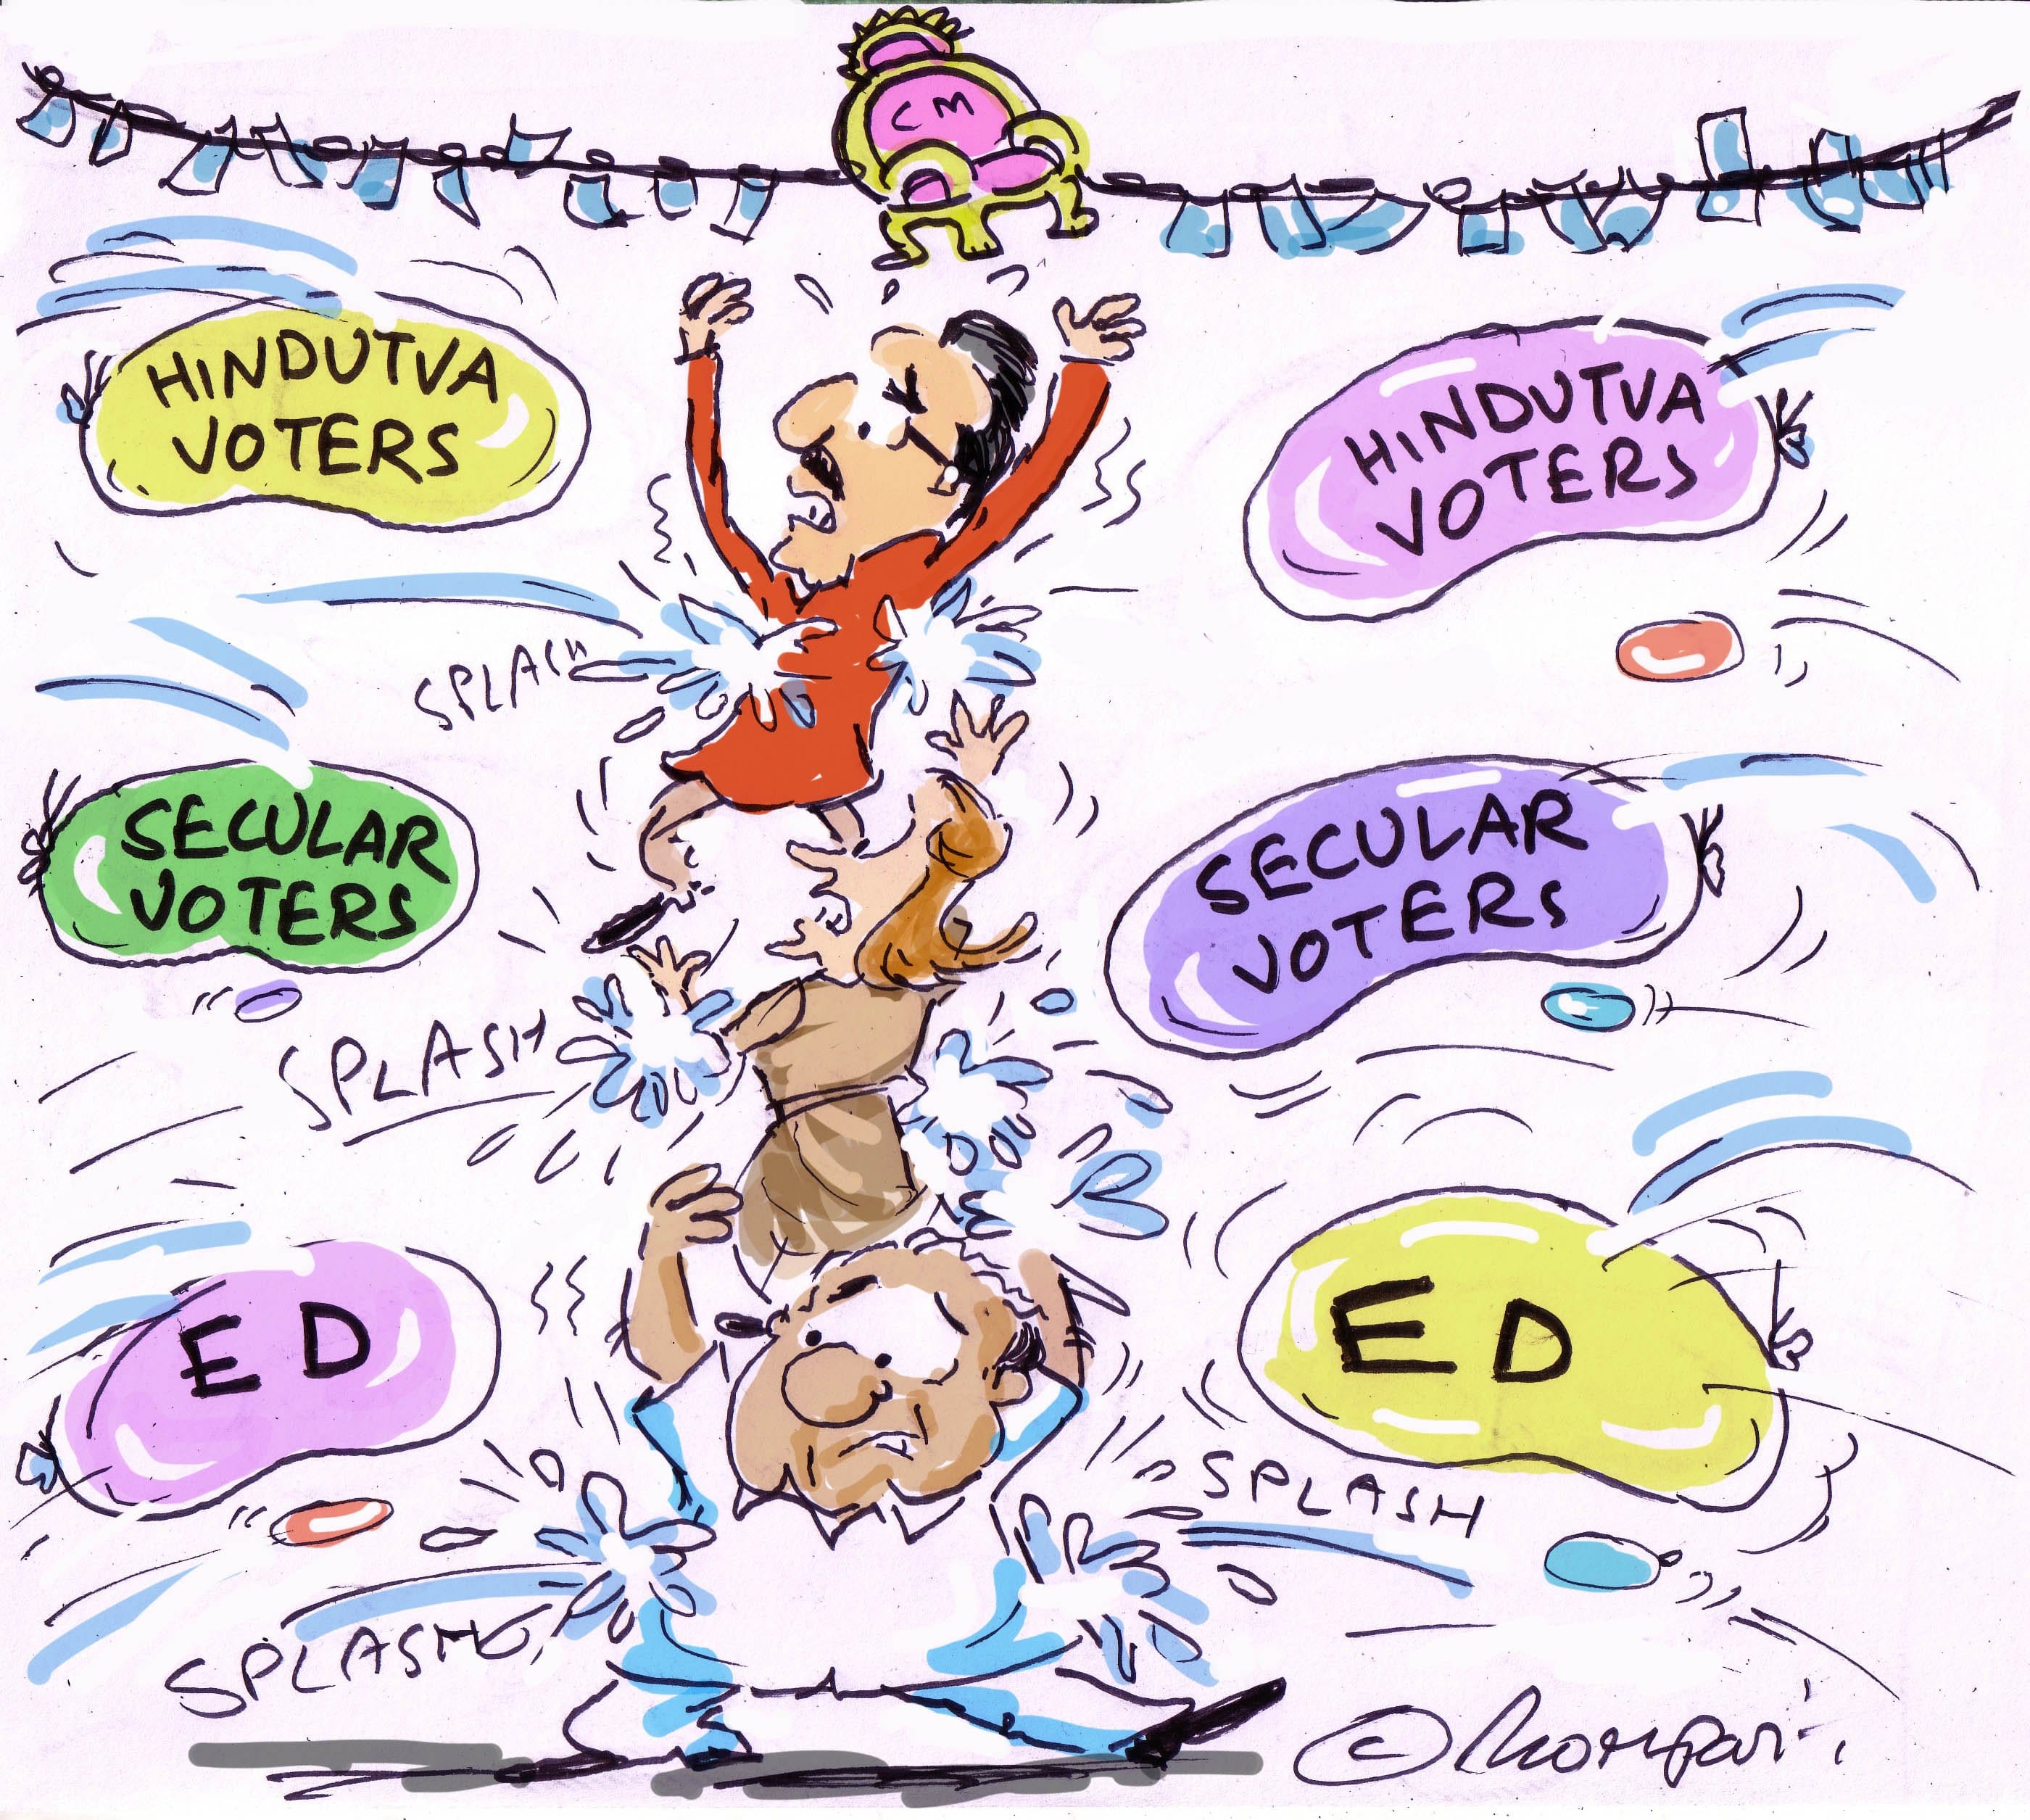 CM
HINDUTVA
VOTERS
HINDUTVA
VOTERS
SPLASH
SECULAR
VOTERS
SECULAR
VOTERS
SPLASH
ED
ED
SPLASH